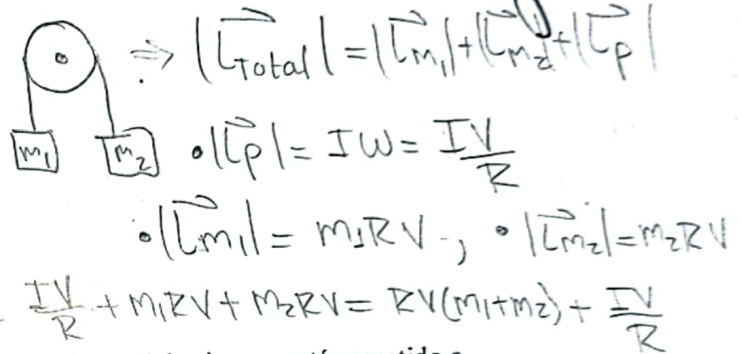 ⇒ |L⃗Total| = |L⃗m₁| + |L⃗m₂| + |L⃗p|
m₁ m₂ • |L⃗p| = Iω = IV/R
• |L⃗m₁| = m₁RV , • |L⃗m₂| = m₂RV
IV/R + m₁RV + m₂RV = RV(m₁+m₂) + IV/R